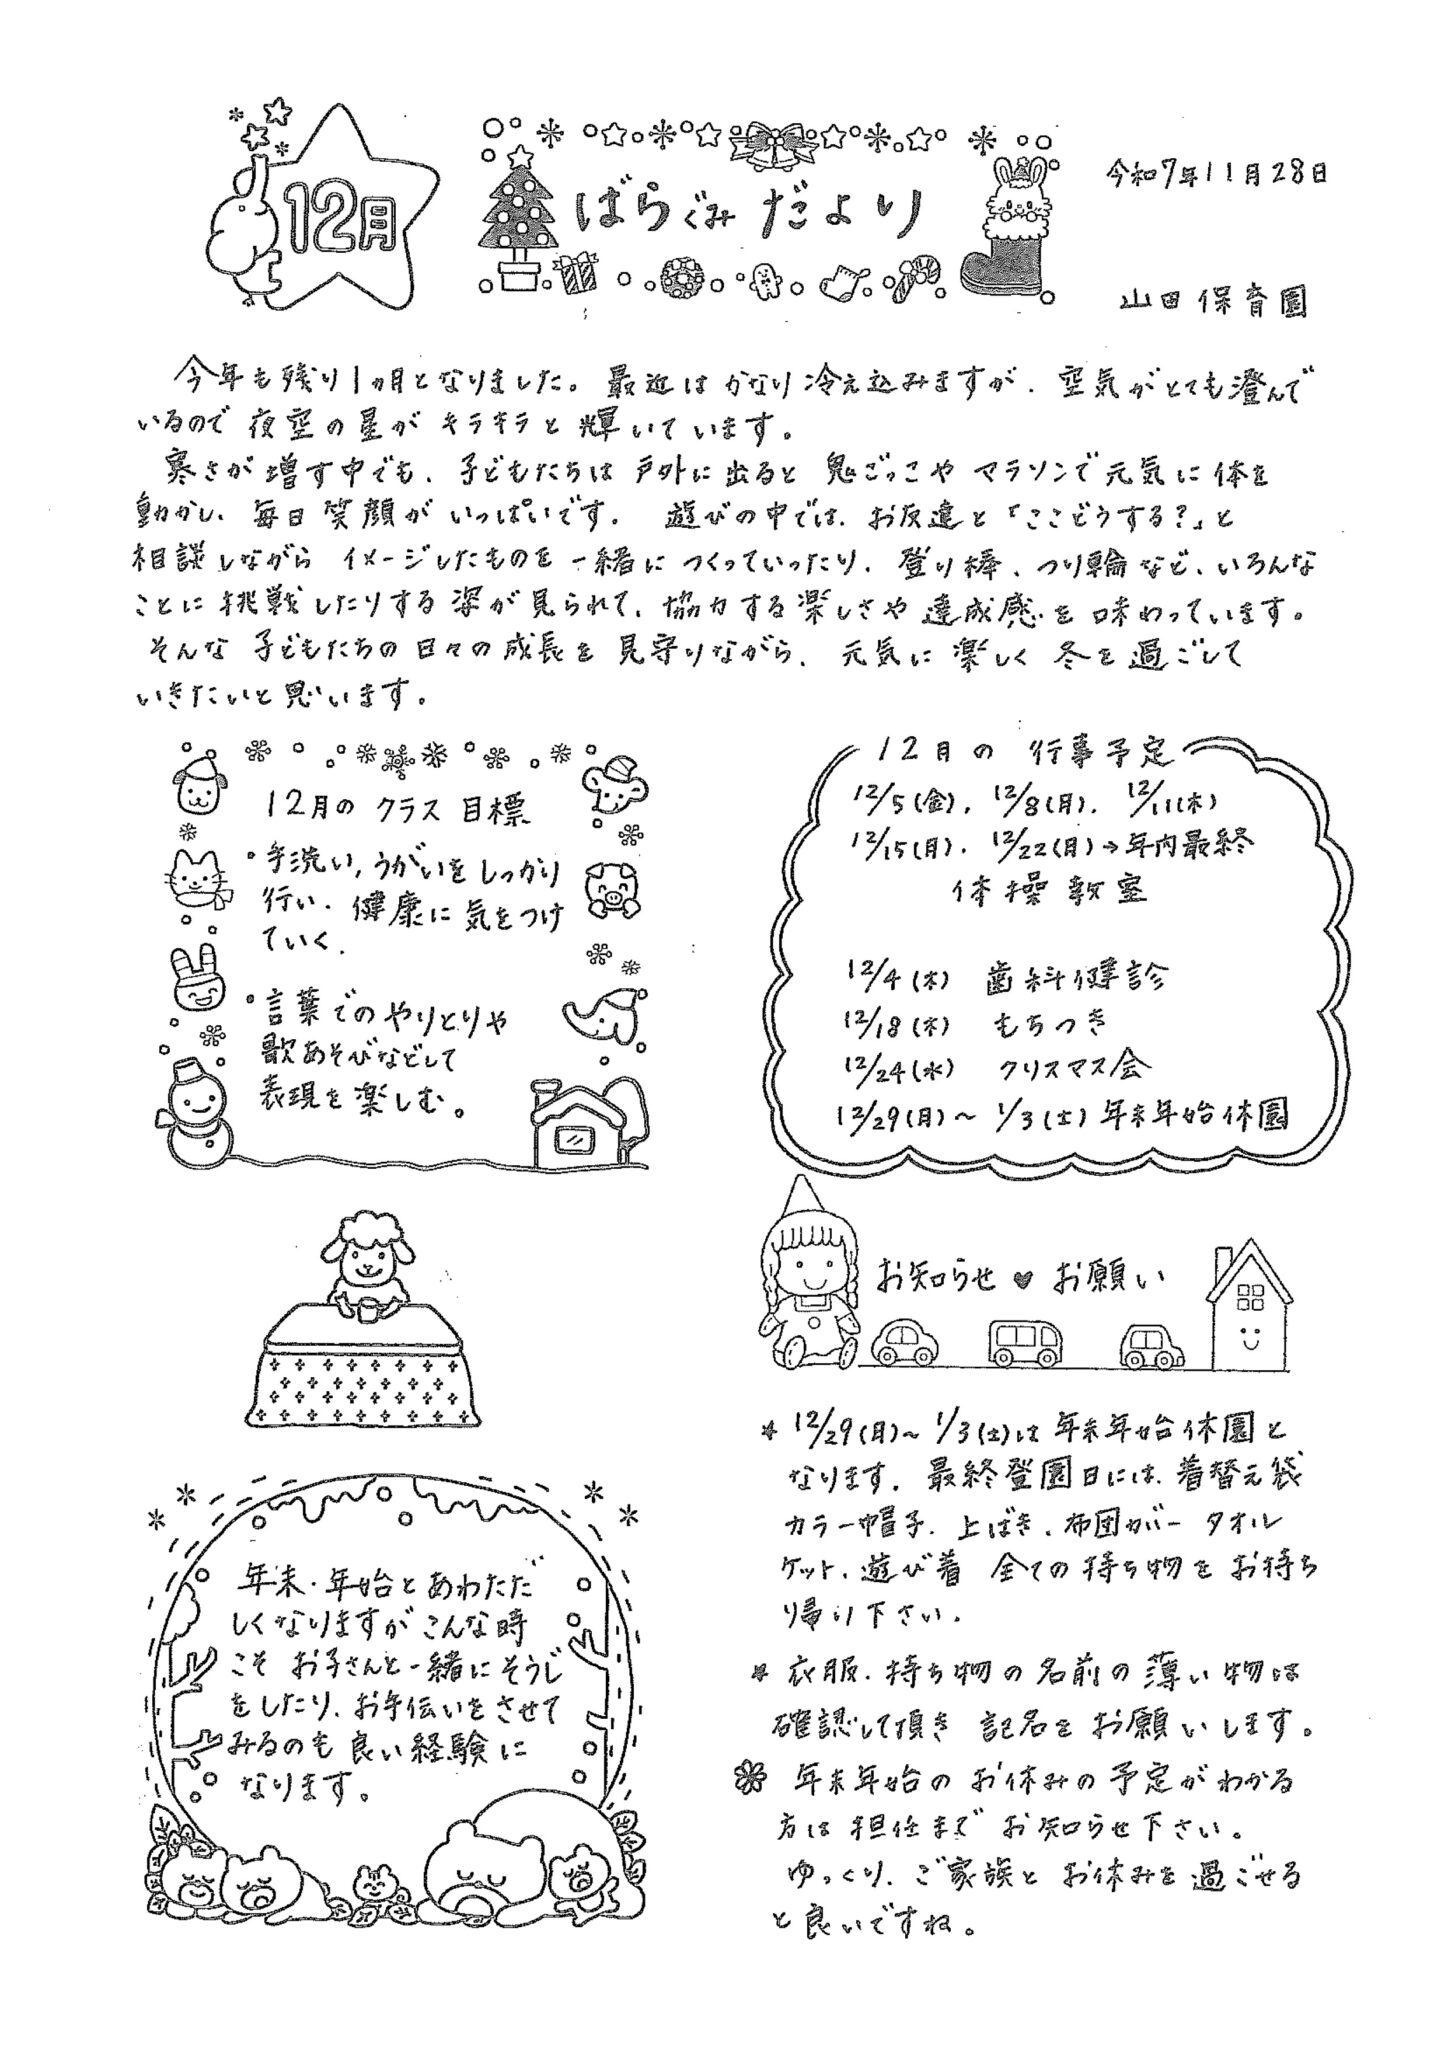 12月
ばらぐみだより
令和7年11月28日
山田保育園
今年も残り1ヵ月となりました。最近はかなり冷え込みますが、空気がとても澄んで
いるので夜空の星がキラキラと輝いています。
寒さが増す中でも、子どもたちは戸外に出ると鬼ごっこやマラソンで元気に体を
動かし、毎日笑顔がいっぱいです。遊びの中では、お友達と「ここどうする?」と
相談しながらイメージしたものを一緒につくっていったり、登り棒、つり輪など、いろんな
ことに挑戦したりする姿が見られて、協力する楽しさや達成感を味わっています。
そんな子どもたちの日々の成長を見守りながら、元気に楽しく冬を過ごして
いきたいと思います。
12月のクラス目標
・手洗い,うがいをしっかり
行い、健康に気をつけ
ていく、
・言葉でのやりとりや
歌あそびなどして
表現を楽しむ。
12月の行事予定
12/5(金)、12/8(月)、12/11(木)
12/15(月)、12/22(月)→年内最終
体操教室
12/4(木) 歯科健診
12/18(木) もちつき
12/24(水) クリスマス会
12/29(月)~1/3(土)年末年始休園
お知らせ♥お願い
* 12/29(月)~1/3(土)は年末年始休園と
なります。最終登園日には、着替え袋
カラー帽子、上ばき、布団カバータオル
ケット、遊び着 全ての持ち物をお持ち
帰り下さい。
* 衣服、持ち物の名前の薄い物は
確認して頂き 記名をお願いします。
年末年始のお休みの予定がわかる
方は担任までお知らせ下さい。
ゆっくり、ご家族とお休みを過ごせる
と良いですね。
年末・年始とあわただ
しくなりますがこんな時
こそお子さんと一緒にそうじ
をしたり、お手伝いをさせて
みるのも良い経験に
なります。